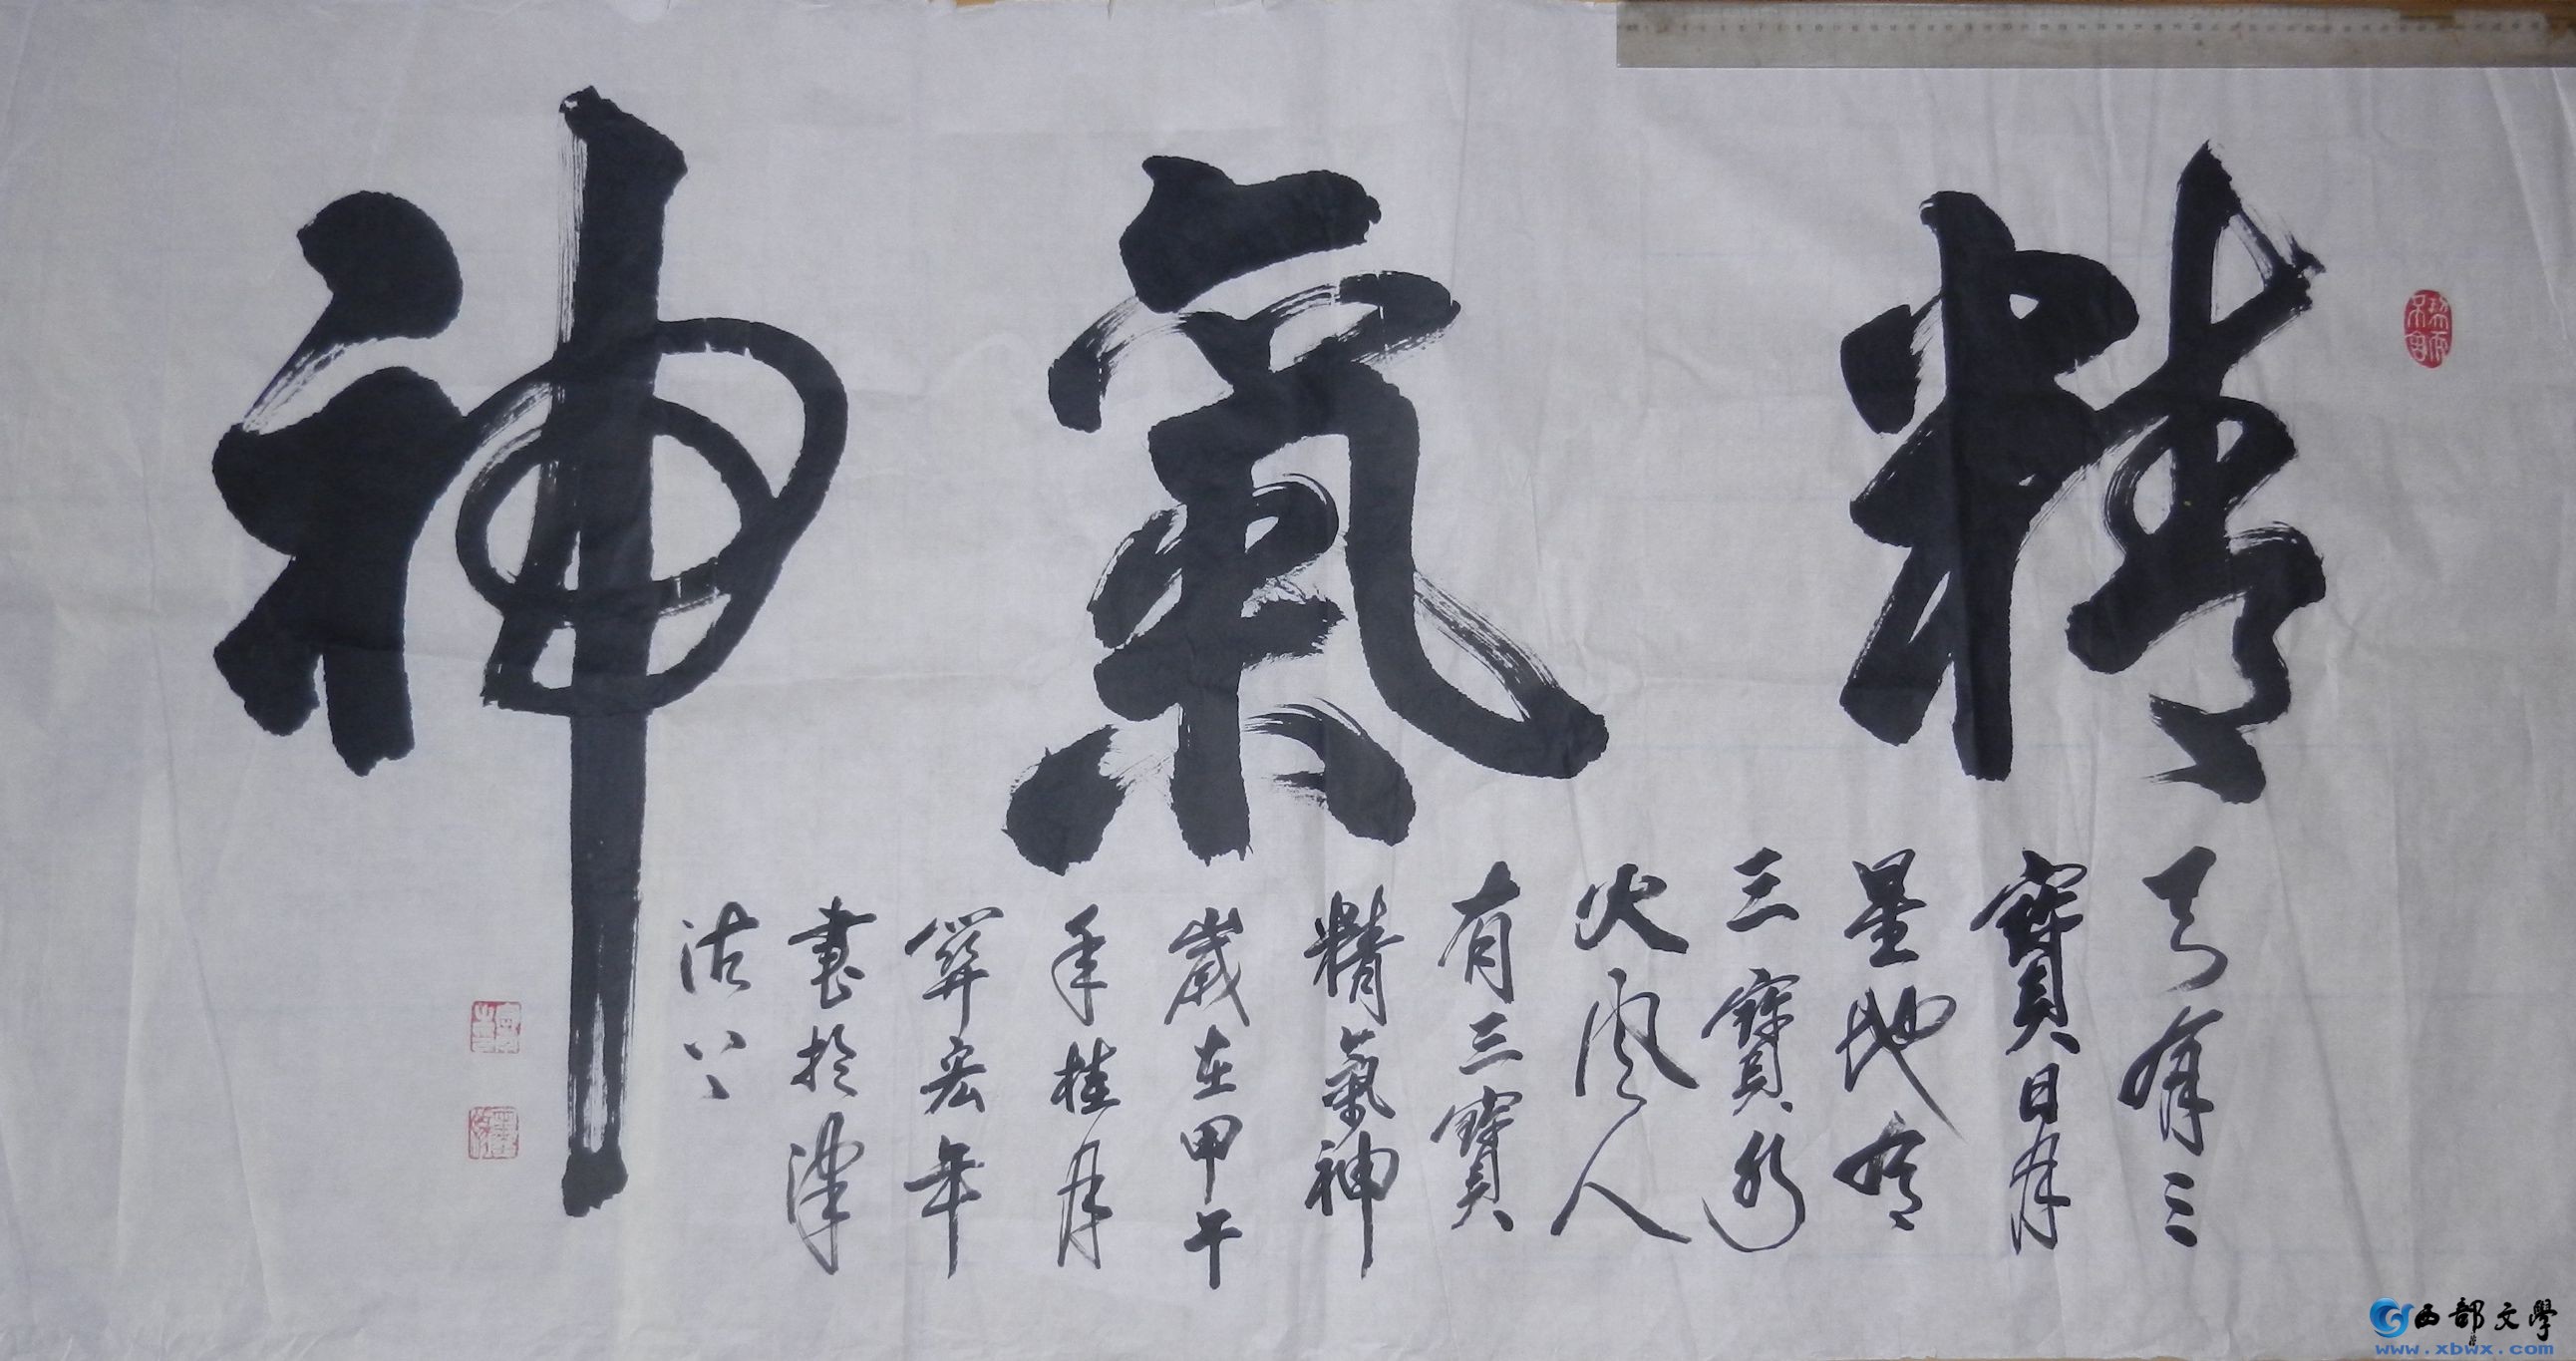 精氣神
天有三
寶日月
星地有
三寶水
火風人
有三寶
精氣神
歲在甲午
年桂月
宏年
書於津
沽
西部文學
www.xbwx.com